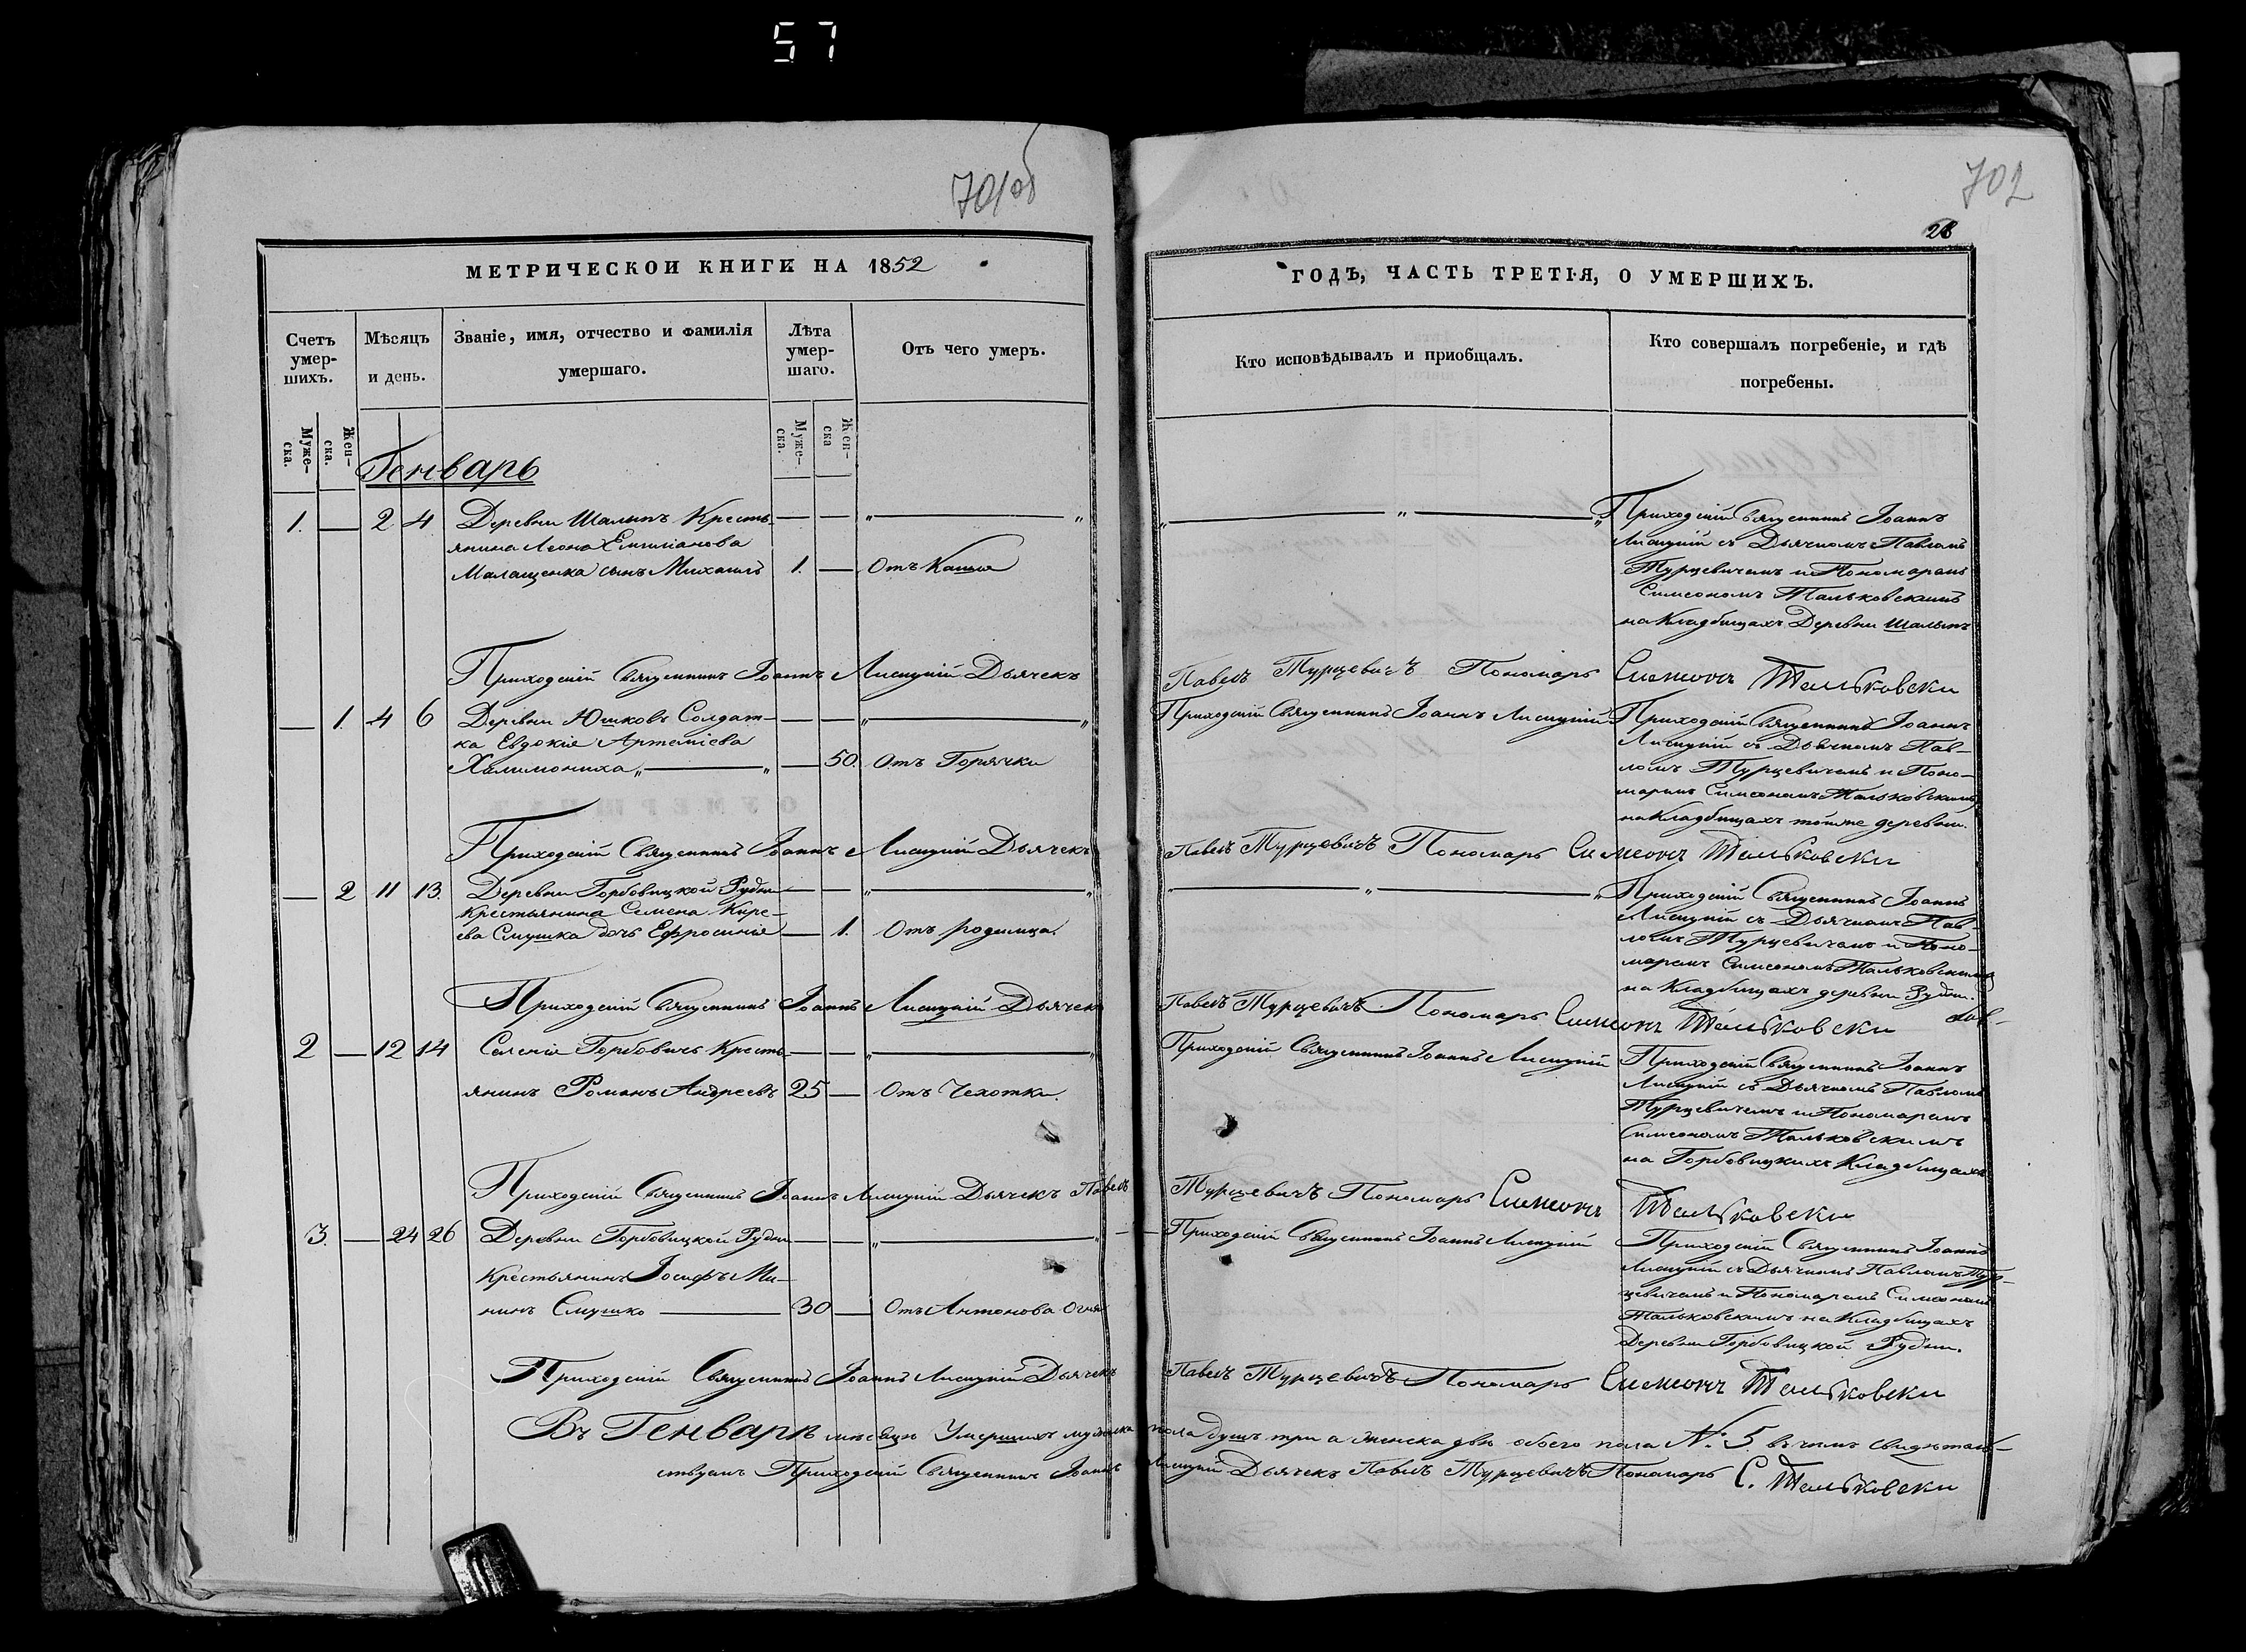 57
701об
702
28
МЕТРИЧЕСКОЙ КНИГИ НА 1852
ГОДЪ, ЧАСТЬ ТРЕТІЯ, О УМЕРШИХЪ.
Счетъ умер-шихъ.
Мѣсяцъ и день.
Званіе, имя, отчество и фамилія умершаго.
Лѣта умер-шаго.
Отъ чего умеръ.
Кто исповѣдывалъ и приобщалъ.
Кто совершалъ погребеніе, и гдѣ погребены.
Муже-ска.
Жен-ска.
Муже-ска.
Жен-ска
Генварь
1. — 2 4 Деревни Шалыпъ Кресть-
янина Леона Емиліанова
Малащенка сынъ Михаилъ 1. — Отъ Кашля
Приходскій Священникъ Іоаннъ
Лисицкій съ Дьячкомъ Павломъ
Турцевичемъ и Пономаремъ
Симеономъ Тальковскимъ
на Кладбищахъ Деревни Шалыпъ
Приходскій Священникъ Іоаннъ Лисицкій Дьячекъ Павелъ Турцевичъ Пономарь Симеонъ Тальковски
— 1. 4 6 Деревни Юшковъ Солдат-
ка Евдокія Артеміева
Халимониха — 50. Отъ Горячки
Приходскій Священникъ Іоаннъ Лисицкій
Приходскій Священникъ Іоаннъ
Лисицкій съ Дьячкомъ Пав-
ломъ Турцевичемъ и Поно-
маремъ Симеономъ Тальковскимъ
на Кладбищахъ тойже деревни.
Приходскій Священникъ Іоаннъ Лисицкій Дьячекъ Павелъ Турцевичъ Пономарь Симеонъ Тальковски
— 2 11 13. Деревни Горбовицкой Рудни
Крестьянина Семена Кире-
ева Смушка дочь Ефросинія — 1. Отъ родимца.
Приходскій Священникъ Іоаннъ
Лисицкій съ Дьячкомъ Пав-
ломъ Турцевичемъ и Поно-
маремъ Симеономъ Тальковскимъ
на Кладбищахъ деревни Рудни.
Приходскій Священникъ Іоаннъ Лисицкій Дьячекъ Павелъ Турцевичъ Пономарь Симеонъ Тальковски
2 — 12 14 Селенія Горбовичъ Кресть-
янинъ Романъ Андреевъ 25 — Отъ Чехотки.
Приходскій Священникъ Іоаннъ Лисицкій
Приходскій Священникъ Іоаннъ
Лисицкій съ Дьячкомъ Павломъ
Турцевичемъ и Пономаремъ
Симеономъ Тальковскимъ
на Горбовицкихъ Кладбищахъ
Приходскій Священникъ Іоаннъ Лисицкій Дьячекъ Павелъ Турцевичъ Пономарь Симеонъ Тальковски
3. — 24 26 Деревни Горбовицкой Рудни
Крестьянинъ Іосифъ Ми-
нинъ Смушко 30 — Отъ Антонова Огня
Приходскій Священникъ Іоаннъ Лисицкій
Приходскій Священникъ Іоаннъ
Лисицкій съ Дьячкомъ Павломъ Тур-
цевичемъ и Пономаремъ Симеономъ
Тальковскимъ на Кладбищахъ
Деревни Горбовицкой Рудни.
Приходскій Священникъ Іоаннъ Лисицкій Дьячекъ Павелъ Турцевичъ Пономарь Симеонъ Тальковски
Въ Генварѣ мѣсяцѣ Умершихъ мужеска пола душъ три а женска двѣ обоего пола №: 5 въ чемъ свидѣтель-
ствуемъ Приходскій Священникъ Іоаннъ Лисицкій Дьячекъ Павелъ Турцевичъ Пономарь С. Тальковски